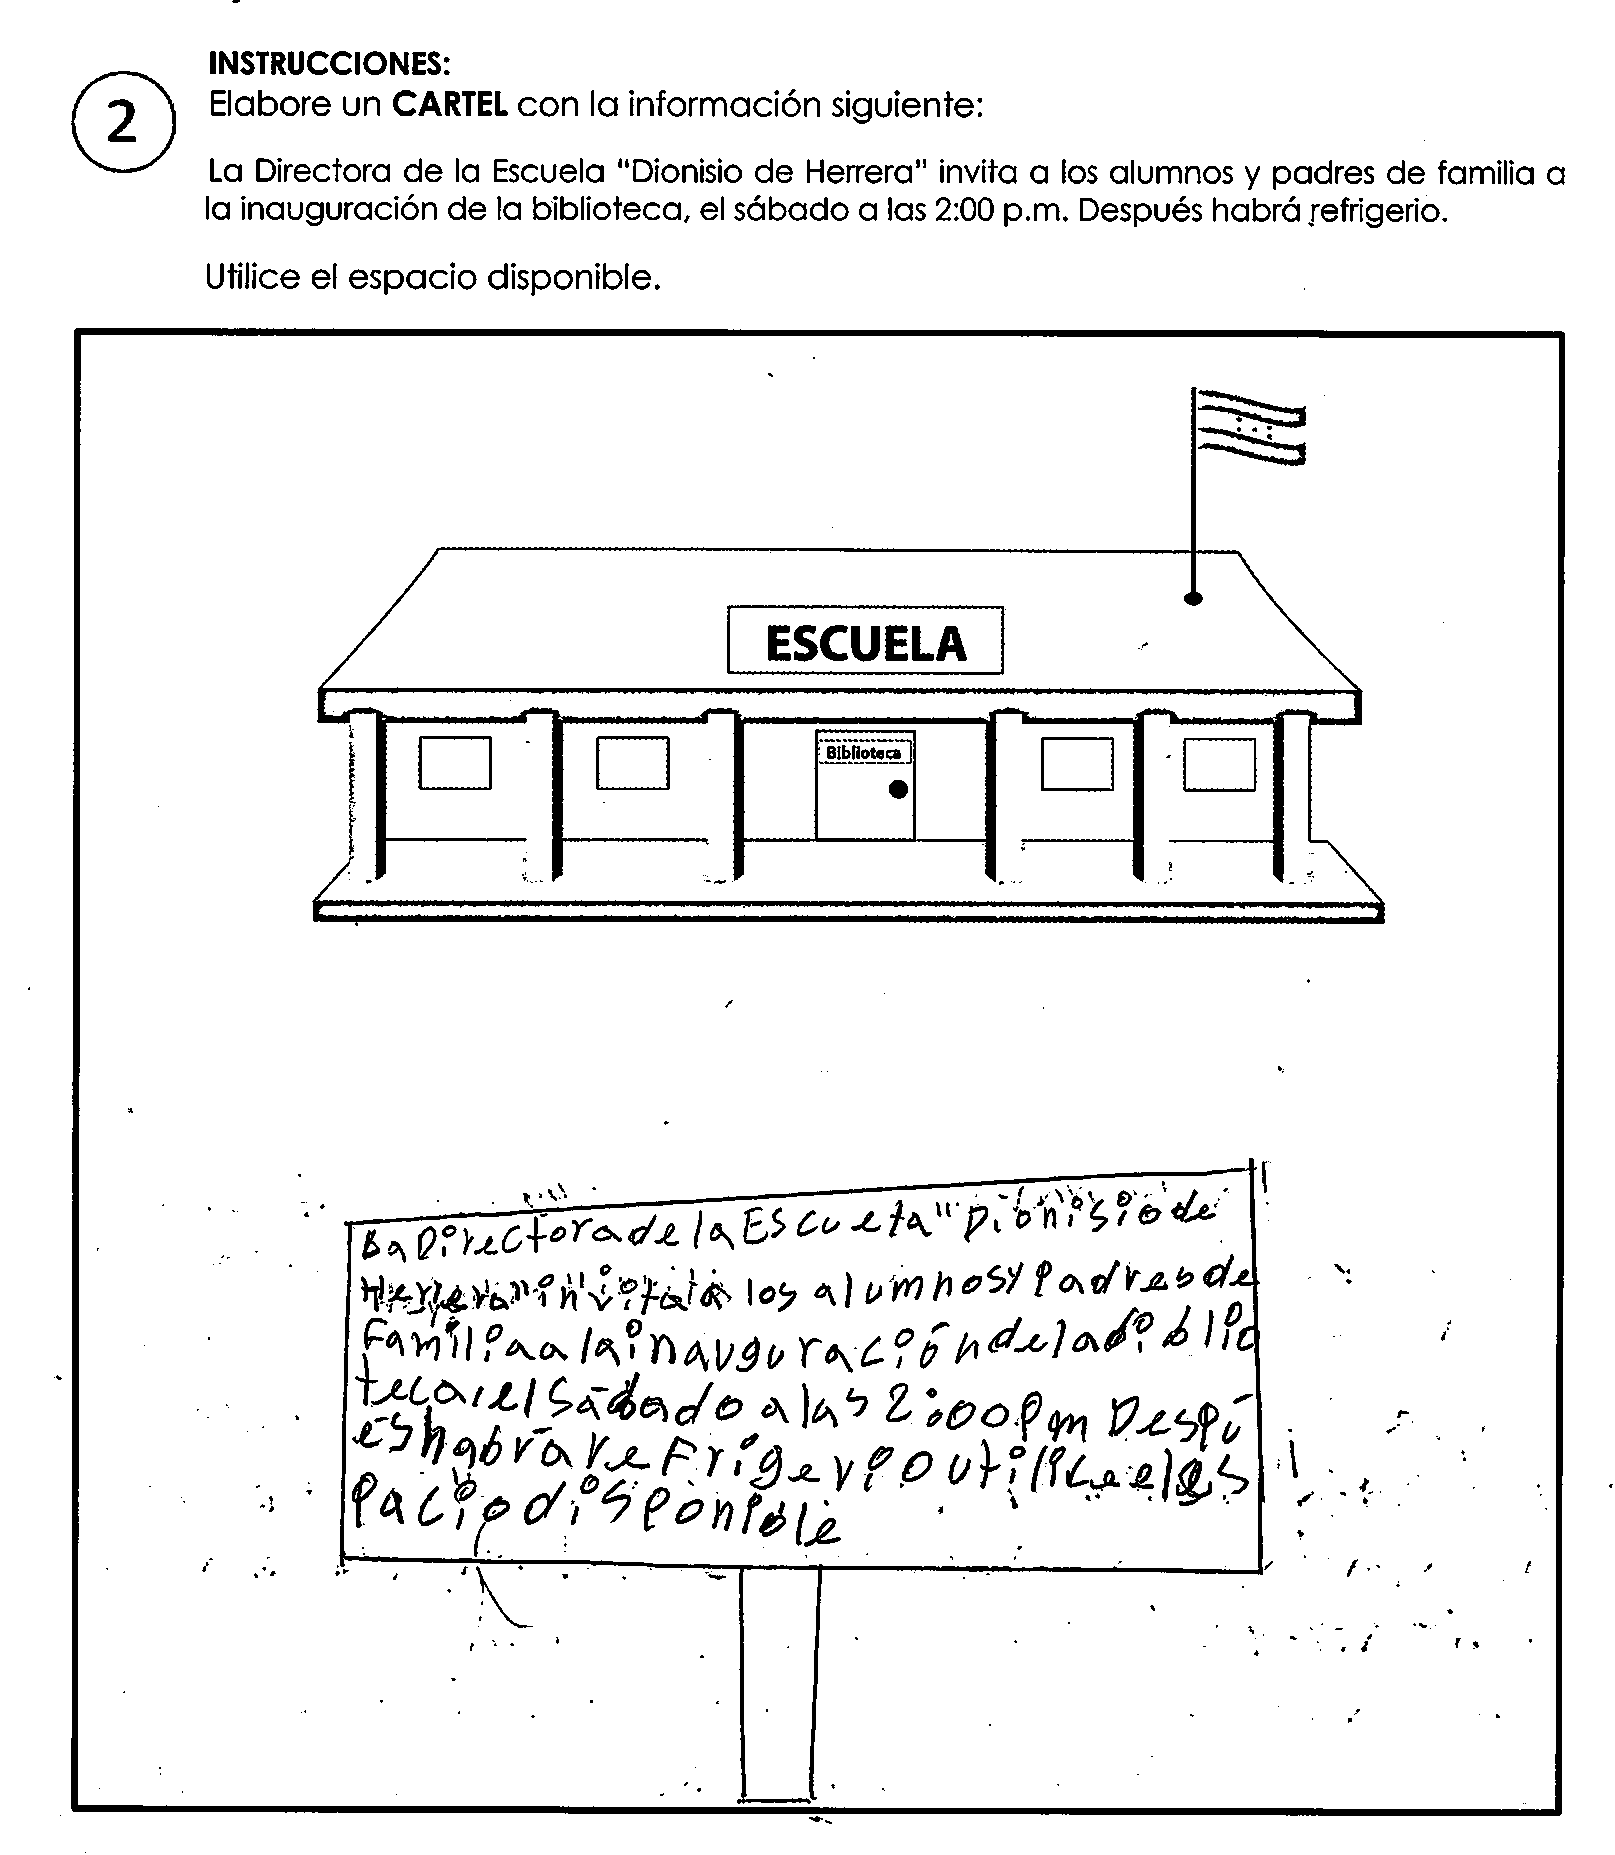 INSTRUCCIONES:
2
Elabore un CARTEL con la información siguiente:
La Directora de la Escuela "Dionisio de Herrera" invita a los alumnos y padres de familia a
la inauguración de la biblioteca, el sábado a las 2:00 p.m. Después habrá refrigerio.
Utilice el espacio disponible.
ESCUELA
Biblioteca
Ba Directora de la Escueta "Dionisio de
Herrera" invita a los alumnos y Padres de
Familia a la inauguración de la biblio
teca, el Sábado a las 2:00 Pm Despú
és habrá re Frigerio utilice el es
pacio disponible